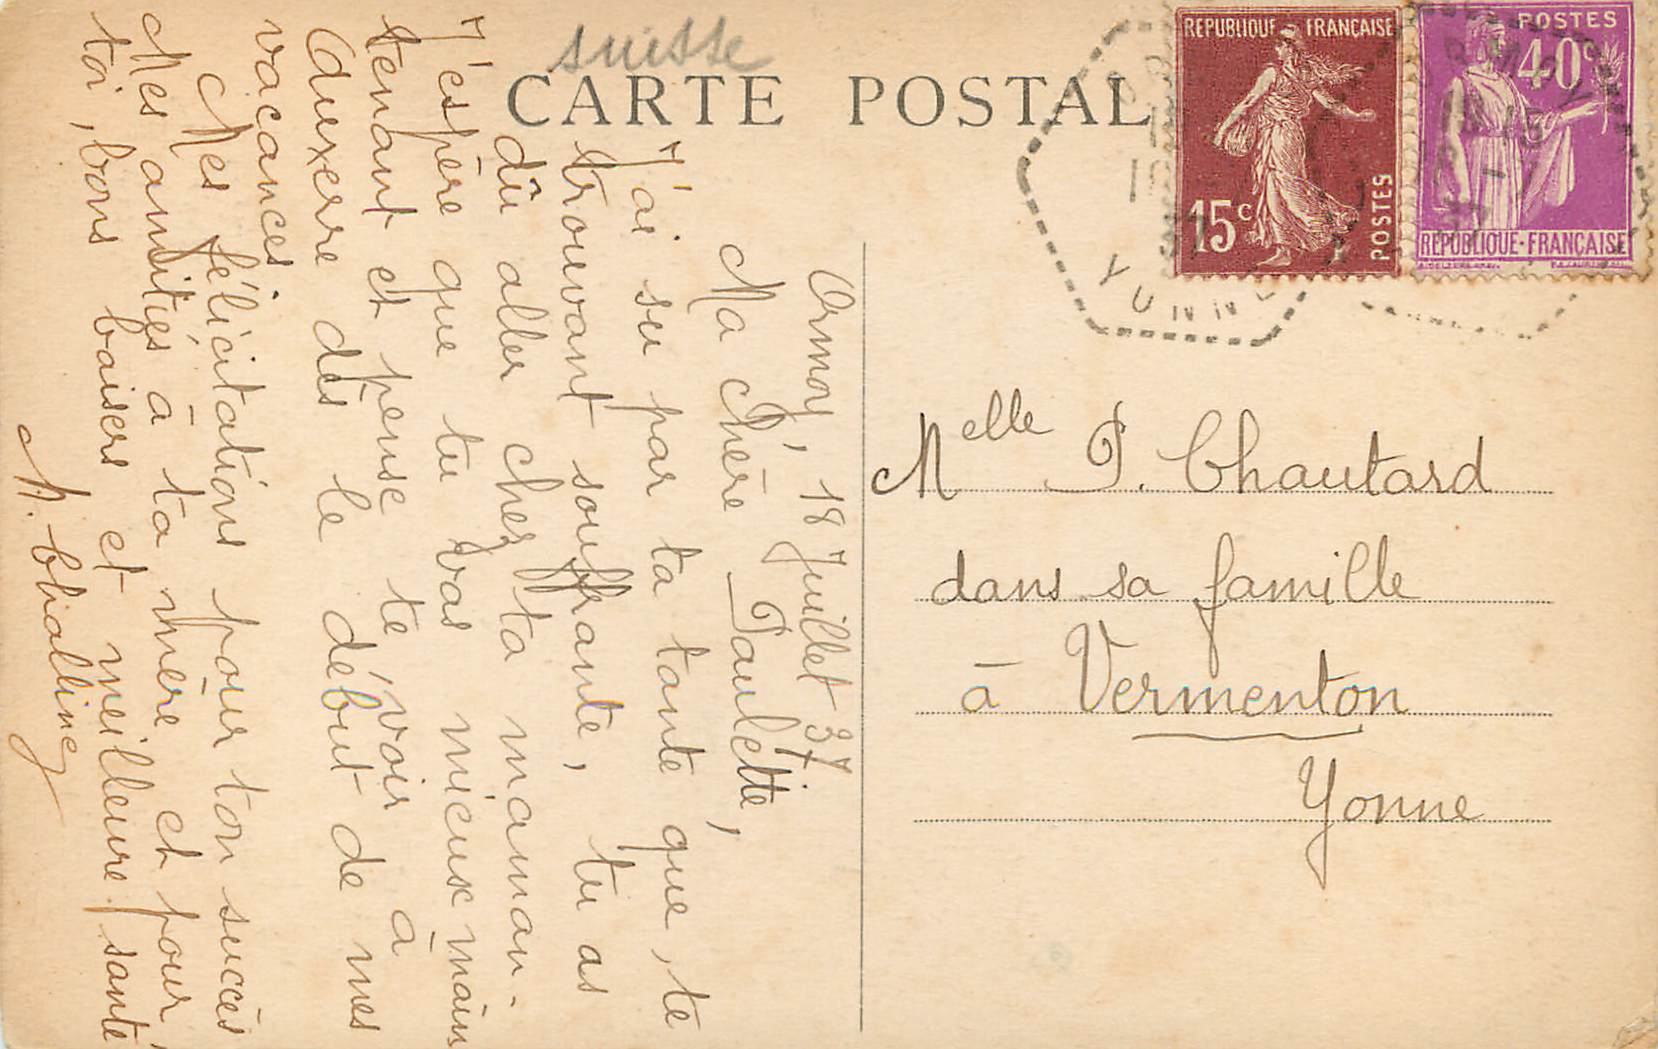 suisse
CARTE POSTALE
REPUBLIQUE FRANÇAISE
15c
POSTES
POSTES
40c
REPUBLIQUE·FRANÇAISE
ORMOY
YONNE
Ormoy, 18 Juillet 37
Ma Chère Paulette,
J'ai su par ta tante que, te
trouvant souffrante, tu as
dû aller chez ta maman.
J'espère que tu vas mieux main
tenant et pense te voir à
Auxerre dès le début de mes
vacances
Mes félicitations pour ton succès
Mes amitiés à ta mère et pour
toi, bons baisers et meilleure santé
Melle P. Chautard
dans sa famille
à Vermenton
Yonne